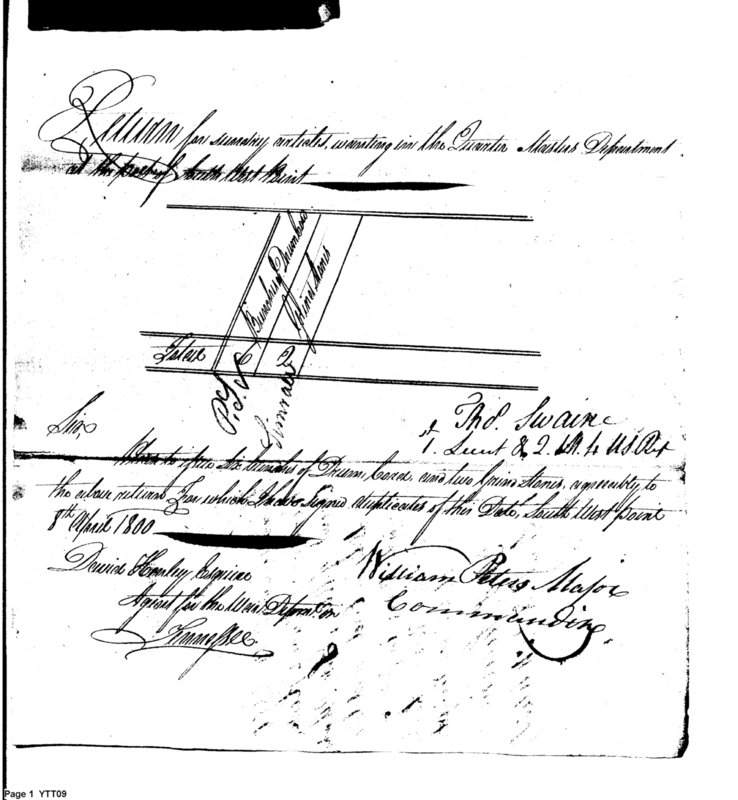 Return for sundry articles, wanting in the Quarter Masters Department
at the post of South West Point
Bunches of Drum Cord
Grind Stones
Total 6 2
Thos. Swaine
1. Lieut & 2. M. 4 US Rt
Sir,
Please to issue six bunches of Drum Cord and two Grind Stones, agreeably to
the above return For which I have signed duplicates of this Date, South West point
8th April 1800
David Henley Esquire
Agent for the War Departmt. in
Tennessee
William Peters Major
Commanding
Page 1 YTT09